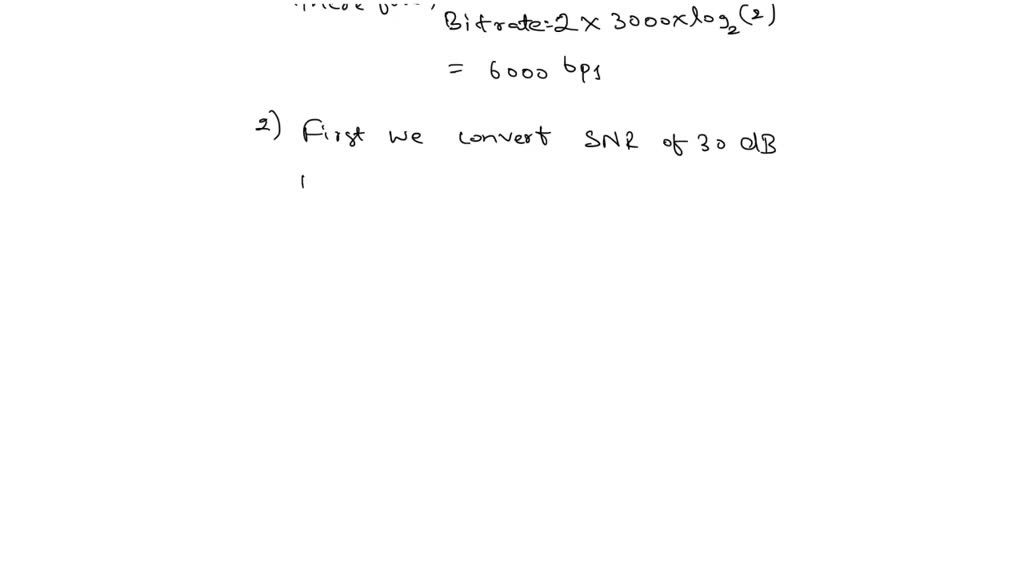 Bitrate=2 × 3000×log₂(2)
= 6000 bps
2) First we convert SNR of 30 dB